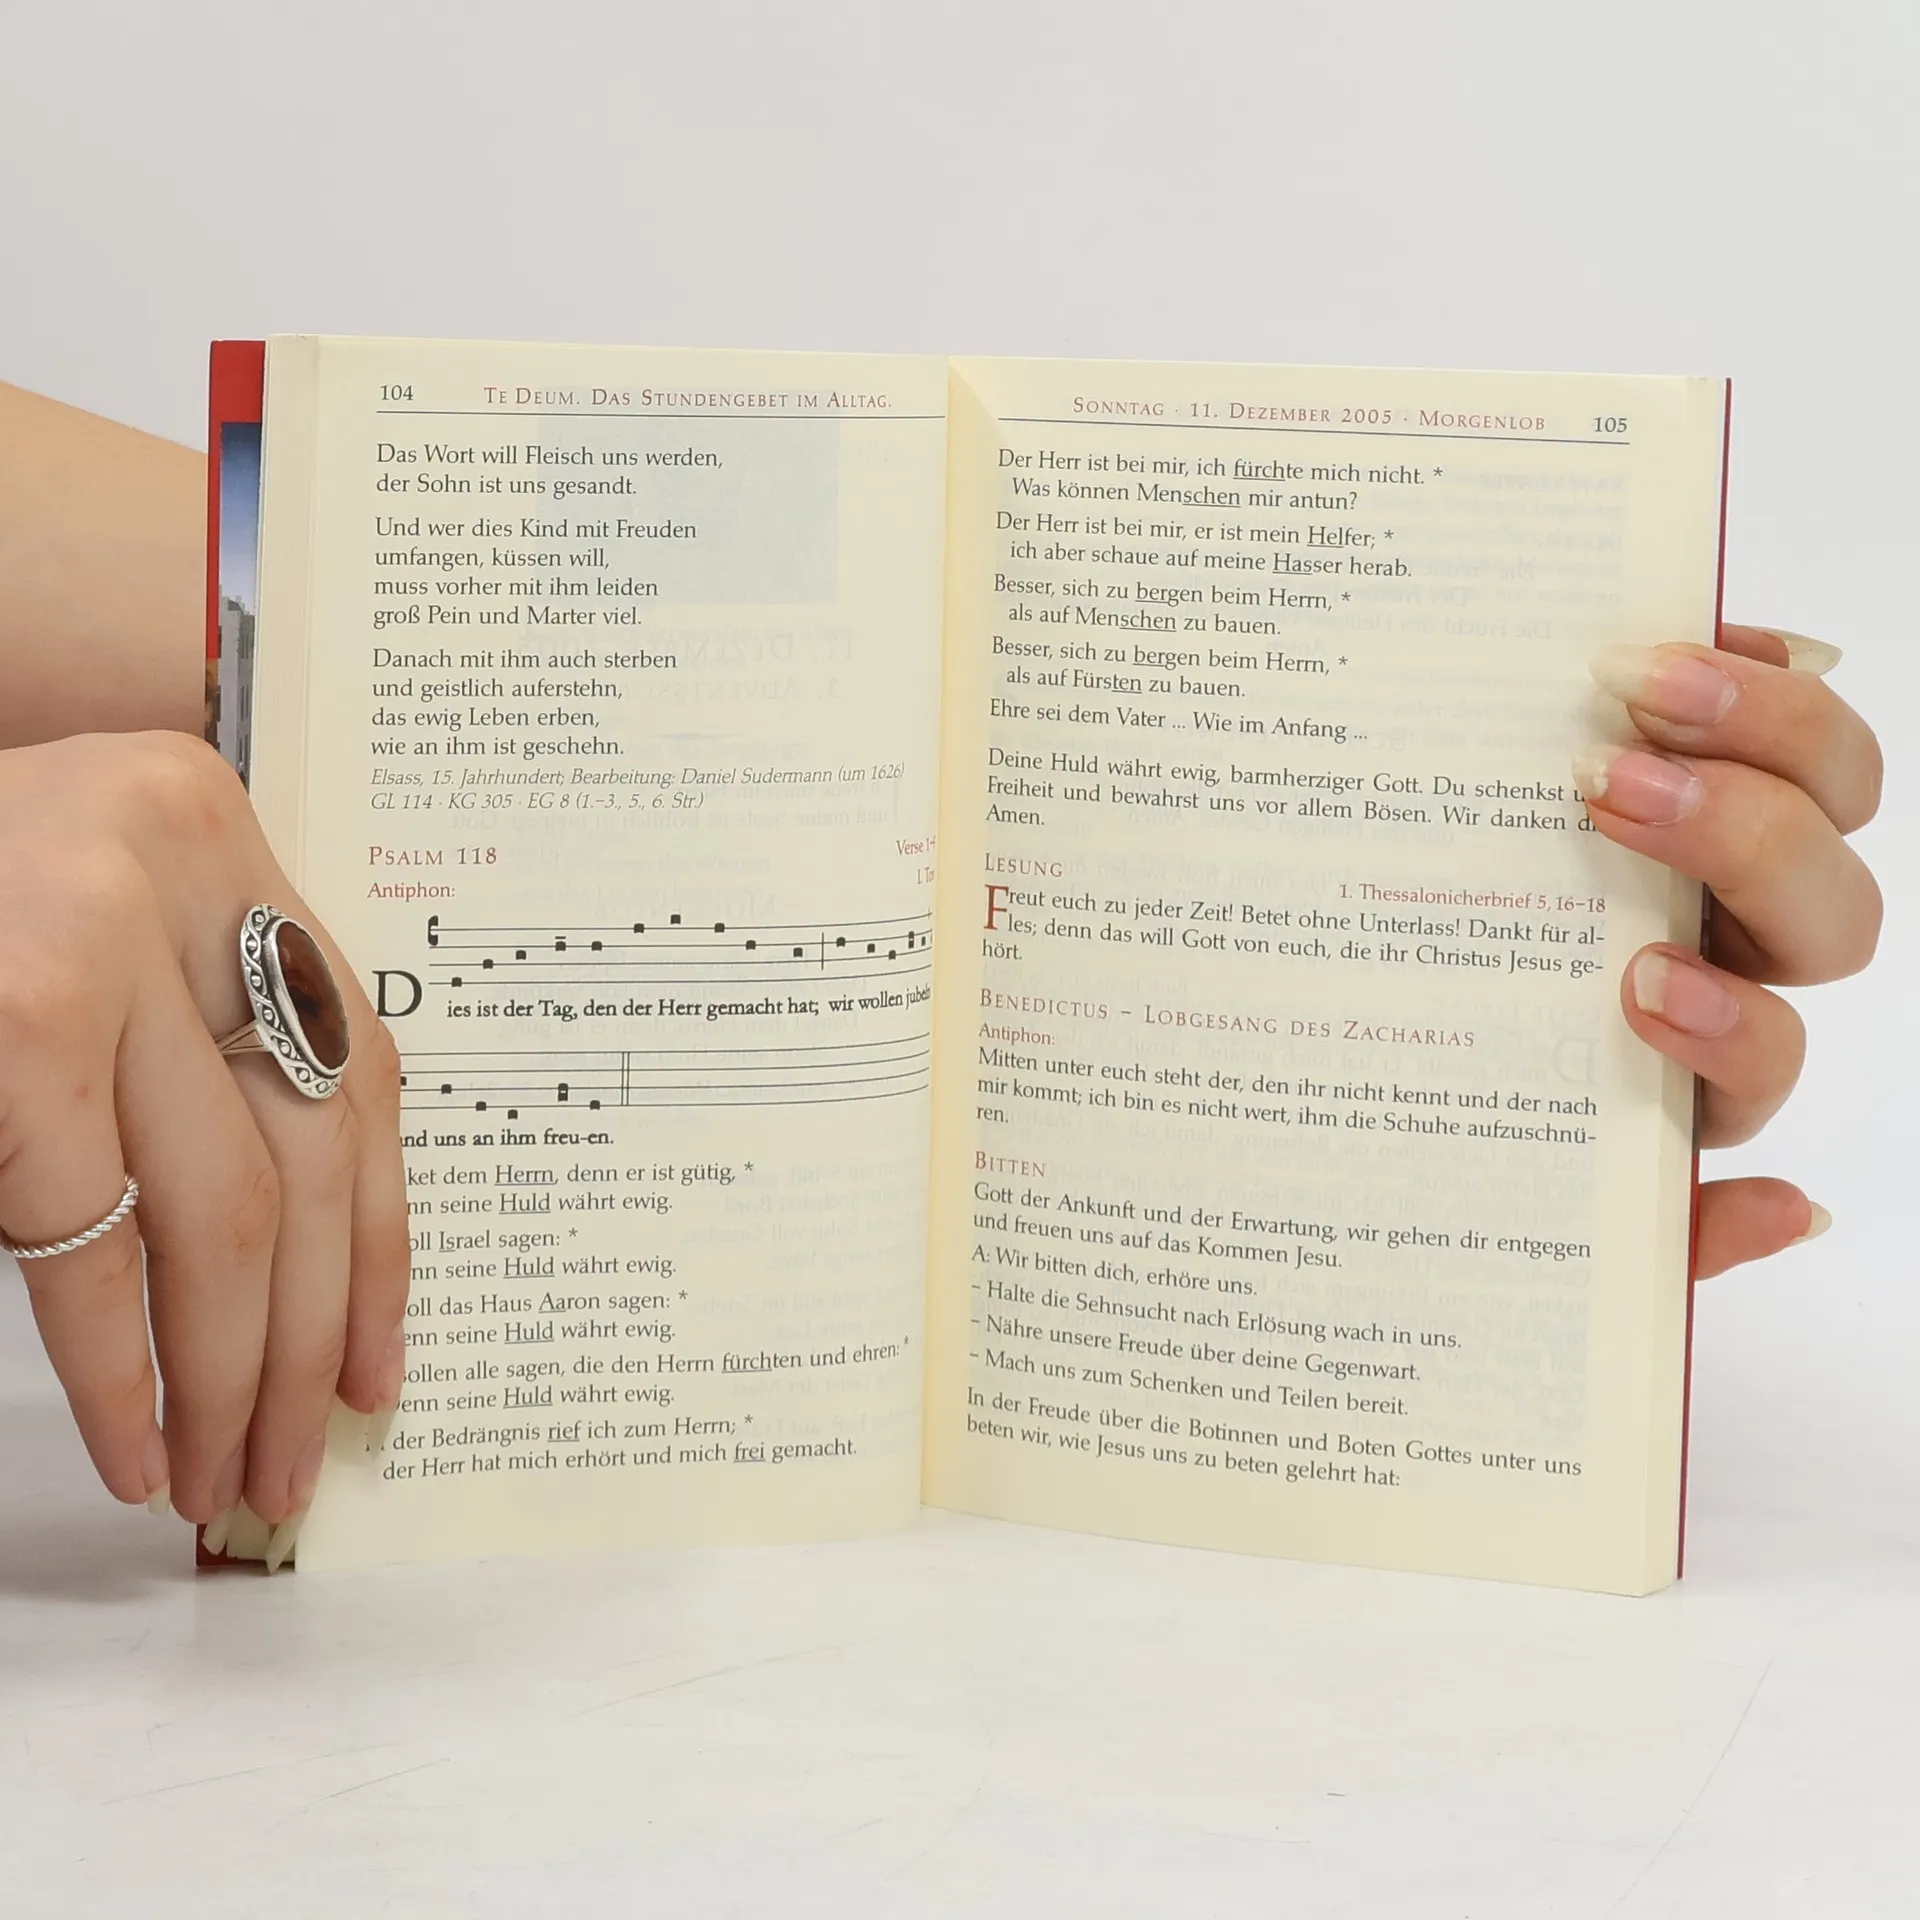 104 TE DEUM. DAS STUNDENGEBET IM ALLTAG.
Das Wort will Fleisch uns werden,
der Sohn ist uns gesandt.
Und wer dies Kind mit Freuden
umfangen, küssen will,
muss vorher mit ihm leiden
groß Pein und Marter viel.
Danach mit ihm auch sterben
und geistlich auferstehn,
das ewig Leben erben,
wie an ihm ist geschehn.
Elsass, 15. Jahrhundert; Bearbeitung: Daniel Sudermann (um 1626)
GL 114 · KG 305 · EG 8 (1.–3., 5., 6. Str.)
PSALM 118
Verse
Antiphon:
I.
Dies ist der Tag, den der Herr gemacht hat; wir wollen jubeln
uns an ihm freu-en.
dem Herrn, denn er ist gütig, *
seine Huld währt ewig.
Israel sagen: *
seine Huld währt ewig.
das Haus Aaron sagen: *
seine Huld währt ewig.
alle sagen, die den Herrn fürchten und ehren: *
seine Huld währt ewig.
der Bedrängnis rief ich zum Herrn; *
der Herr hat mich erhört und mich frei gemacht.
SONNTAG · 11. DEZEMBER 2005 · MORGENLOB 105
Der Herr ist bei mir, ich fürchte mich nicht. *
Was können Menschen mir antun?
Der Herr ist bei mir, er ist mein Helfer; *
ich aber schaue auf meine Hasser herab.
Besser, sich zu bergen beim Herrn, *
als auf Menschen zu bauen.
Besser, sich zu bergen beim Herrn, *
als auf Fürsten zu bauen.
Ehre sei dem Vater ... Wie im Anfang ...
Deine Huld währt ewig, barmherziger Gott. Du schenkst
Freiheit und bewahrst uns vor allem Bösen. Wir danken
Amen.
LESUNG
1. Thessalonicherbrief 5, 16–18
Freut euch zu jeder Zeit! Betet ohne Unterlass! Dankt für al-
les; denn das will Gott von euch, die ihr Christus Jesus ge-
hört.
BENEDICTUS – LOBGESANG DES ZACHARIAS
Antiphon:
Mitten unter euch steht der, den ihr nicht kennt und der nach
mir kommt; ich bin es nicht wert, ihm die Schuhe aufzuschnü-
ren.
BITTEN
Gott der Ankunft und der Erwartung, wir gehen dir entgegen
und freuen uns auf das Kommen Jesu.
A: Wir bitten dich, erhöre uns.
– Halte die Sehnsucht nach Erlösung wach in uns.
– Nähre unsere Freude über deine Gegenwart.
– Mach uns zum Schenken und Teilen bereit.
In der Freude über die Botinnen und Boten Gottes unter uns
beten wir, wie Jesus uns zu beten gelehrt hat: